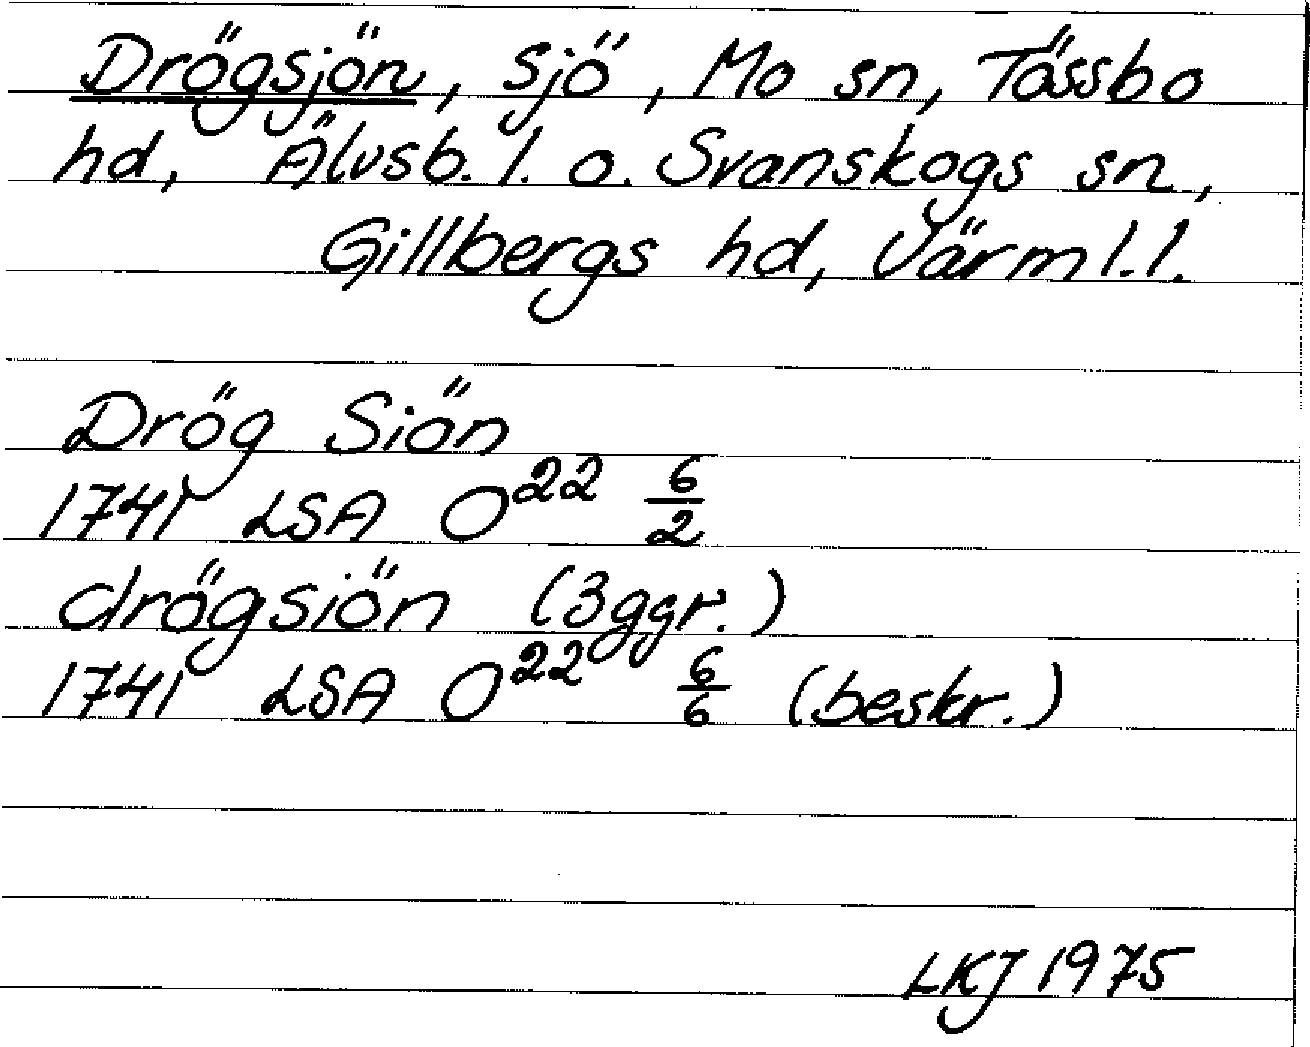 Drögsjön, sjö, Mo sn, Tössbo
hd, Älvsb. l. o. Svanskogs sn,
Gillbergs hd, Värml. l.
Drög Siön
1741 LSA O²² 6/2
drögsiön (3ggr.)
1741 LSA O²² 6/6 (beskr.)
LKJ 1975